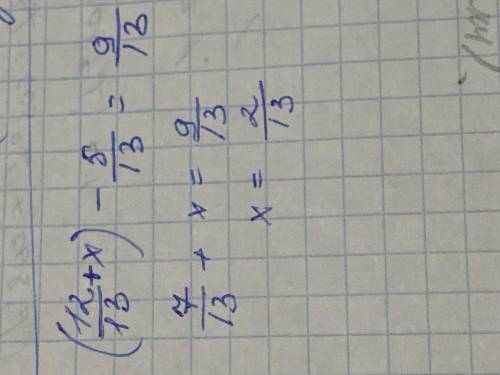 (12/13 + x) - 5/13 = 9/13
7/13 + x = 9/13
x = 2/13